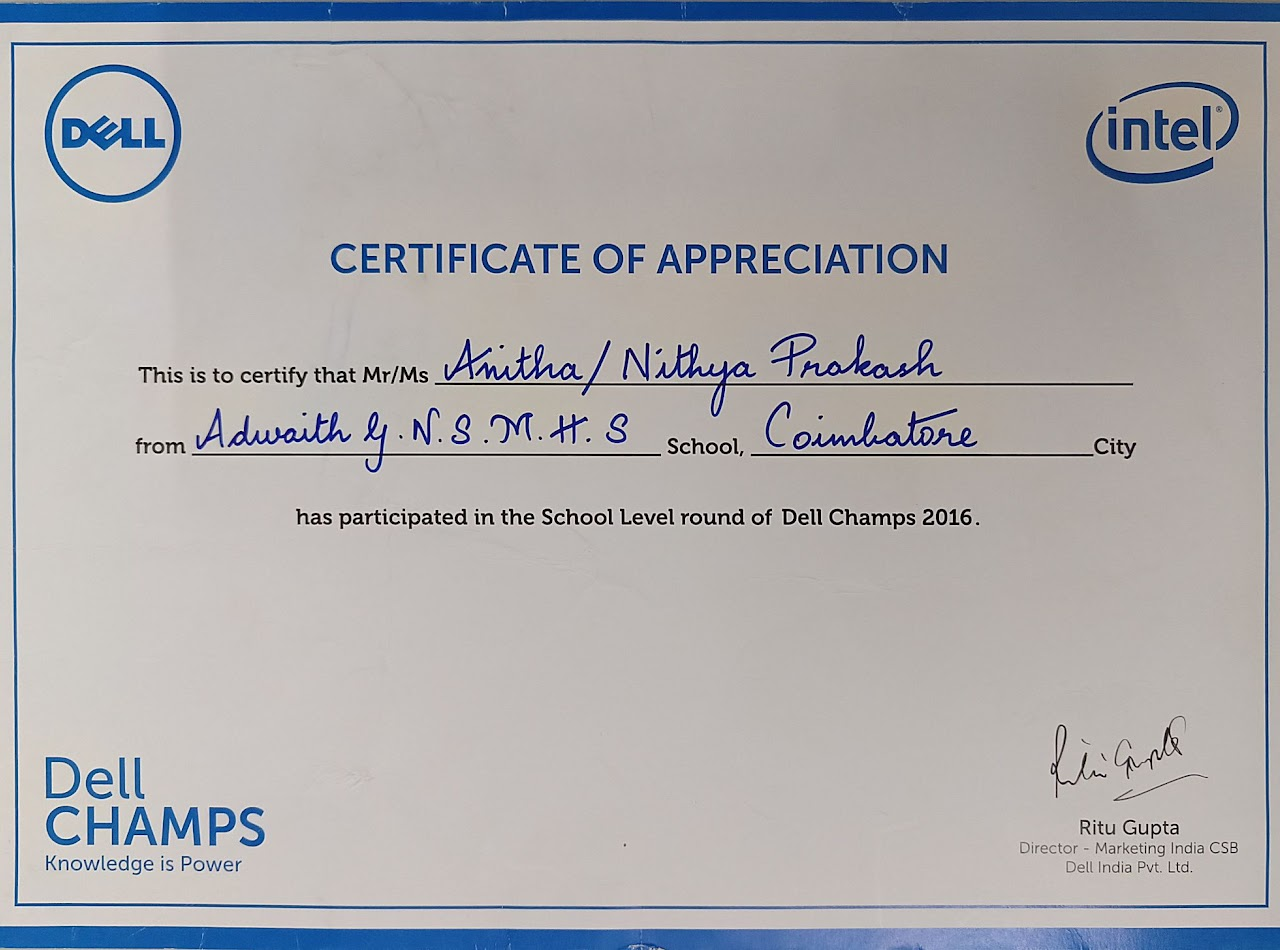 DELL
intel®
CERTIFICATE OF APPRECIATION
This is to certify that Mr/Ms Anitha / Nithya Prakash
from Adwaith G. N. S. M. H. S School, Coimbatore City
has participated in the School Level round of Dell Champs 2016.
Dell
CHAMPS
Knowledge is Power
Ritu Gupta
Ritu Gupta
Director - Marketing India CSB
Dell India Pvt. Ltd.